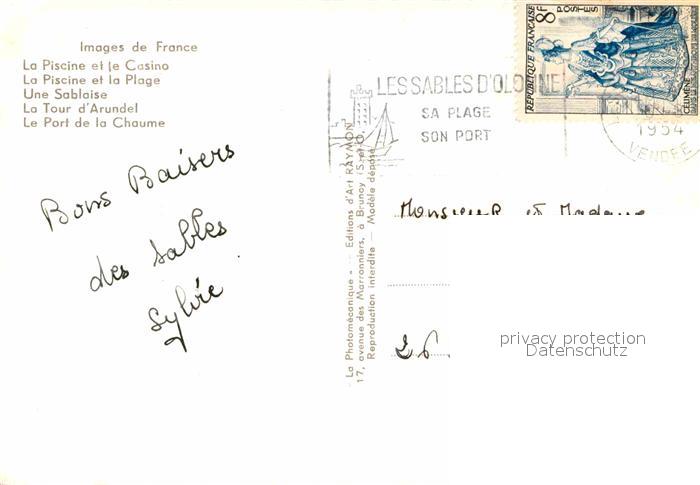 Images de France
La Piscine et le Casino
La Piscine et la Plage
Une Sablaise
La Tour d'Arundel
Le Port de la Chaume
Bons Baisers
des sables
Sylvie
La Photomécanique - Editions d'Art RAYMON
17, avenue des Marronniers, à Brunoy (S.-et-O.
Reproduction interdite — Modèle déposé
LES SABLES D'OLONNE
SA PLAGE
SON PORT
8F
POSTES
REPUBLIQUE FRANÇAISE
1954
VENDEE
Monsieur et Madame
privacy protection
Datenschutz